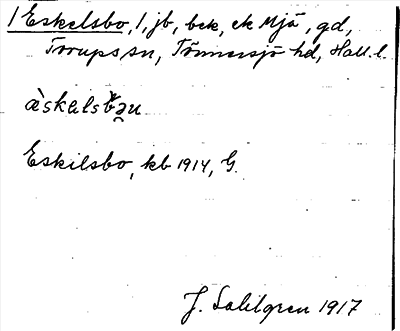 1 Eskelsbo, 1, jb, bek, ek Mjä, gd,
Torups sn, Tönnersjö hd, Hall. l.
Eskilsbo, kb 1914, G.
J. Sahlgren 1917